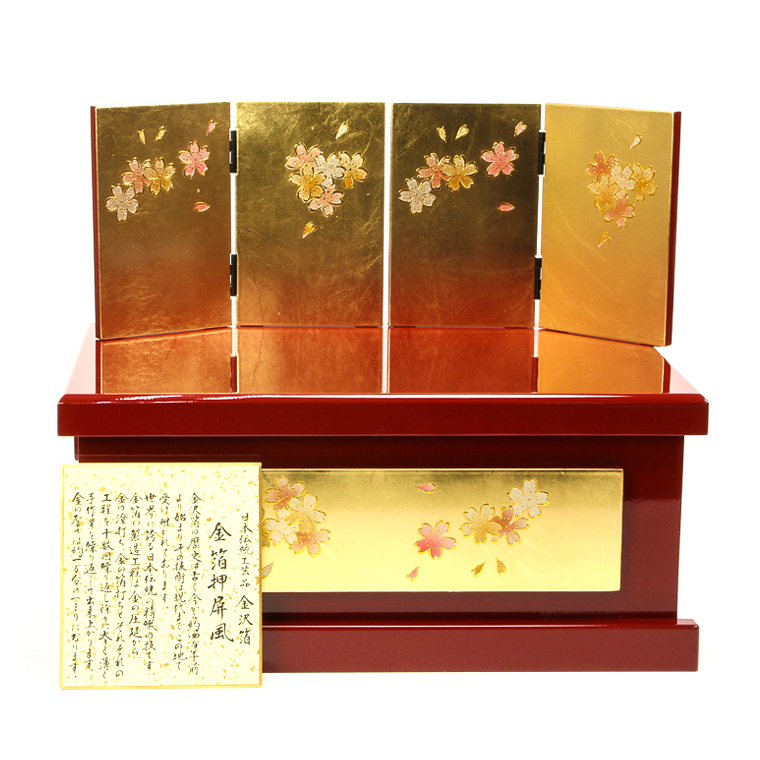 日本伝統工芸品 金沢箔
金箔押屏風
金沢箔の歴史は古く今から約四百年前
より始まりその技術は現代までこの地で
受け継がれております。
世界に誇る日本伝統の技です。
金箔の製造工程は金の圧延から
金の澄打ち、金の箔打ちとそれぞれの
工程を十数回繰り返し徐々に大きく薄く
手作業を繰り返して出来上がります。
金の厚さは約一万分の一ミリになります。